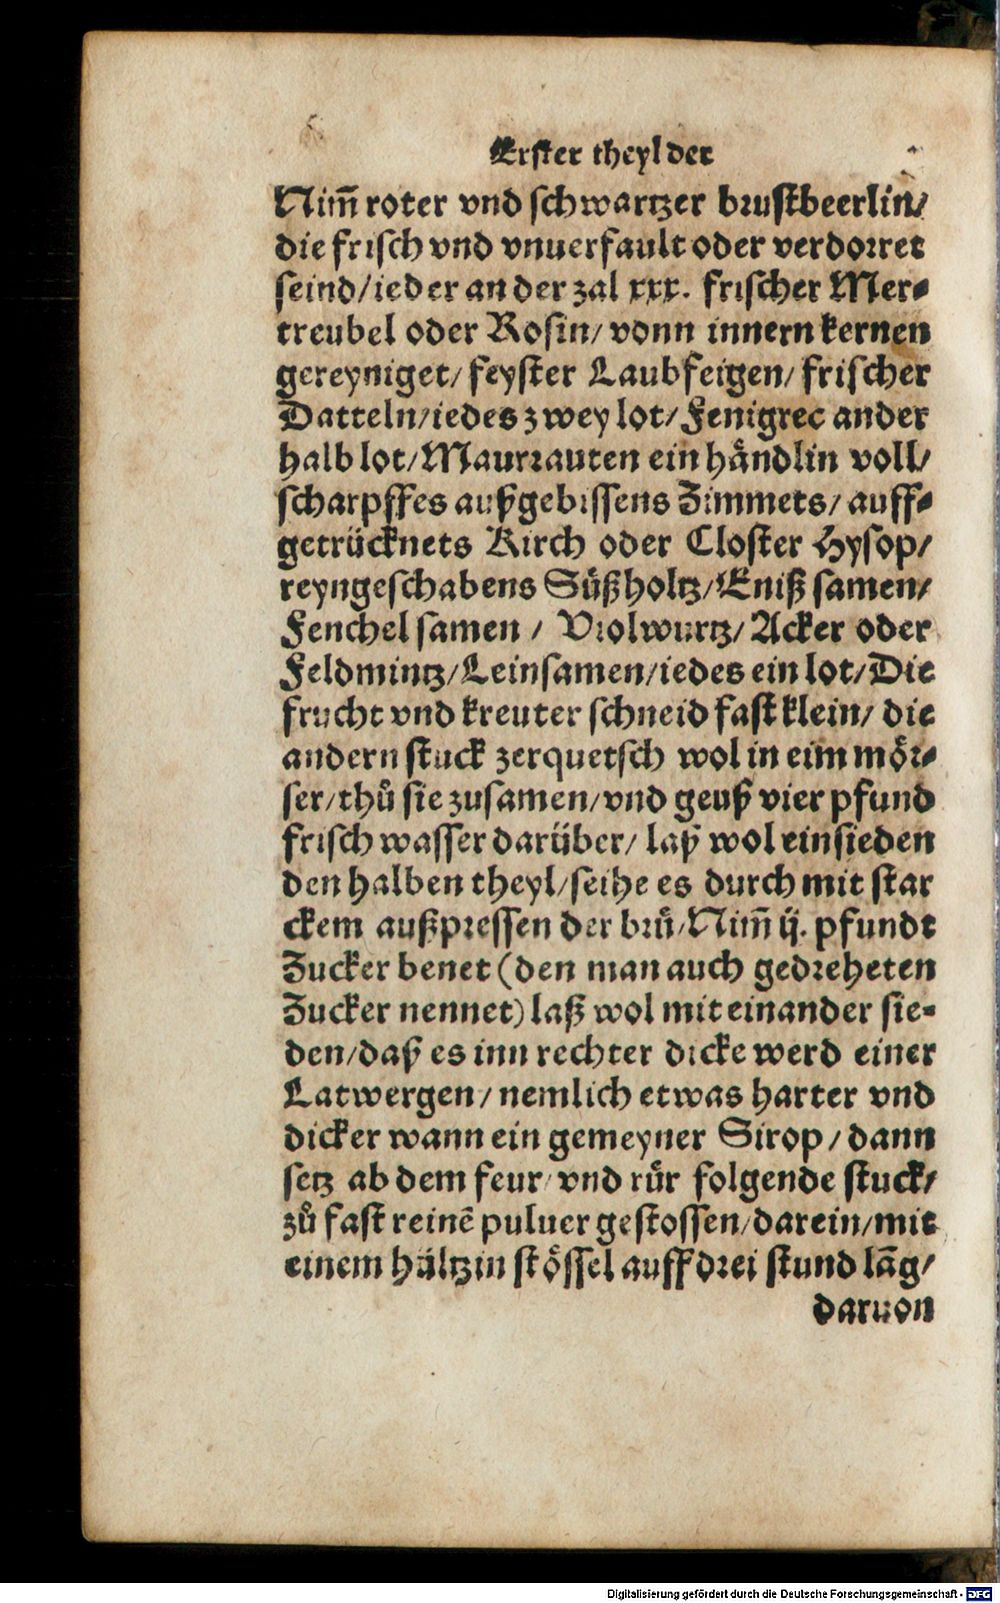 Erster theyl der
Nim̃ roter vnd schwartzer brustbeerlin/
die frisch vnd vnuerfault oder verdorret
seind/ieder an der zal xxx. frischer Mer-
treubel oder Rosin/ vonn innern kernen
gereyniget/ feyster Laubfeigen/ frischer
Datteln/iedes zwey lot/ Fenigrec ander
halb lot/ Maurrauten ein håndlin voll/
scharpffes außgebissens Zimmets/ auff-
getrücknets Kirch oder Closter Hysop/
reyngeschabens Süßholtz/ Eniß samen/
Fenchel samen / Violwurtz/ Acker oder
Feldmintz/ Leinsamen/iedes ein lot/ Die
frucht vnd kreuter schneid fast klein/ die
andern stuck zerquetsch wol in eim mör-
ser/thů sie zusamen/vnd geuß vier pfund
frisch wasser darüber/ laß wol einsieden
den halben theyl/seihe es durch mit star
ckem außpressen der brů/Nim̃ ij. pfundt
Zucker benet (den man auch gedreheten
Zucker nennet) laß wol mit einander sie-
den/daß es inn rechter dicke werd einer
Latwergen/ nemlich etwas harter vnd
dicker wann ein gemeyner Sirop/ dann
setz ab dem feur/ vnd rür folgende stuck/
zů fast reinē puluer gestossen/darein/mit
einem hültzin stössel auff drei stund lāg/
daruon
Digitalisierung gefördert durch die Deutsche Forschungsgemeinschaft - DFG